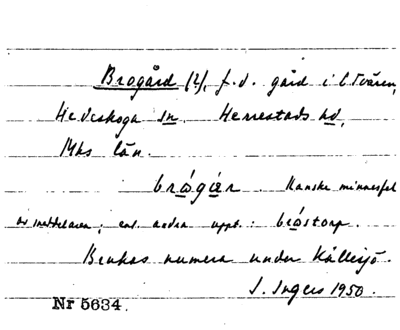 Brogård (2), f.d. gård i L Tvären,
Hedeskoga sn. Herrestads hd,
Mhs län.
brógär. Kanske minnesfel
av meddelaren; enl. andra uppt.: bróstorp.
Brukas numera under Källesjö.
J. Ingers 1950.
Nr 5634.